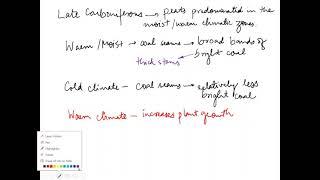 Late Carboniferous → peats predominated in the
moist/warm climatic zones.
Warm/Moist → coal seams → broad bands of
bright coal
thick stems
Cold climate – coal seams → relatively less
bright coal
Warm climate – increases plant growth